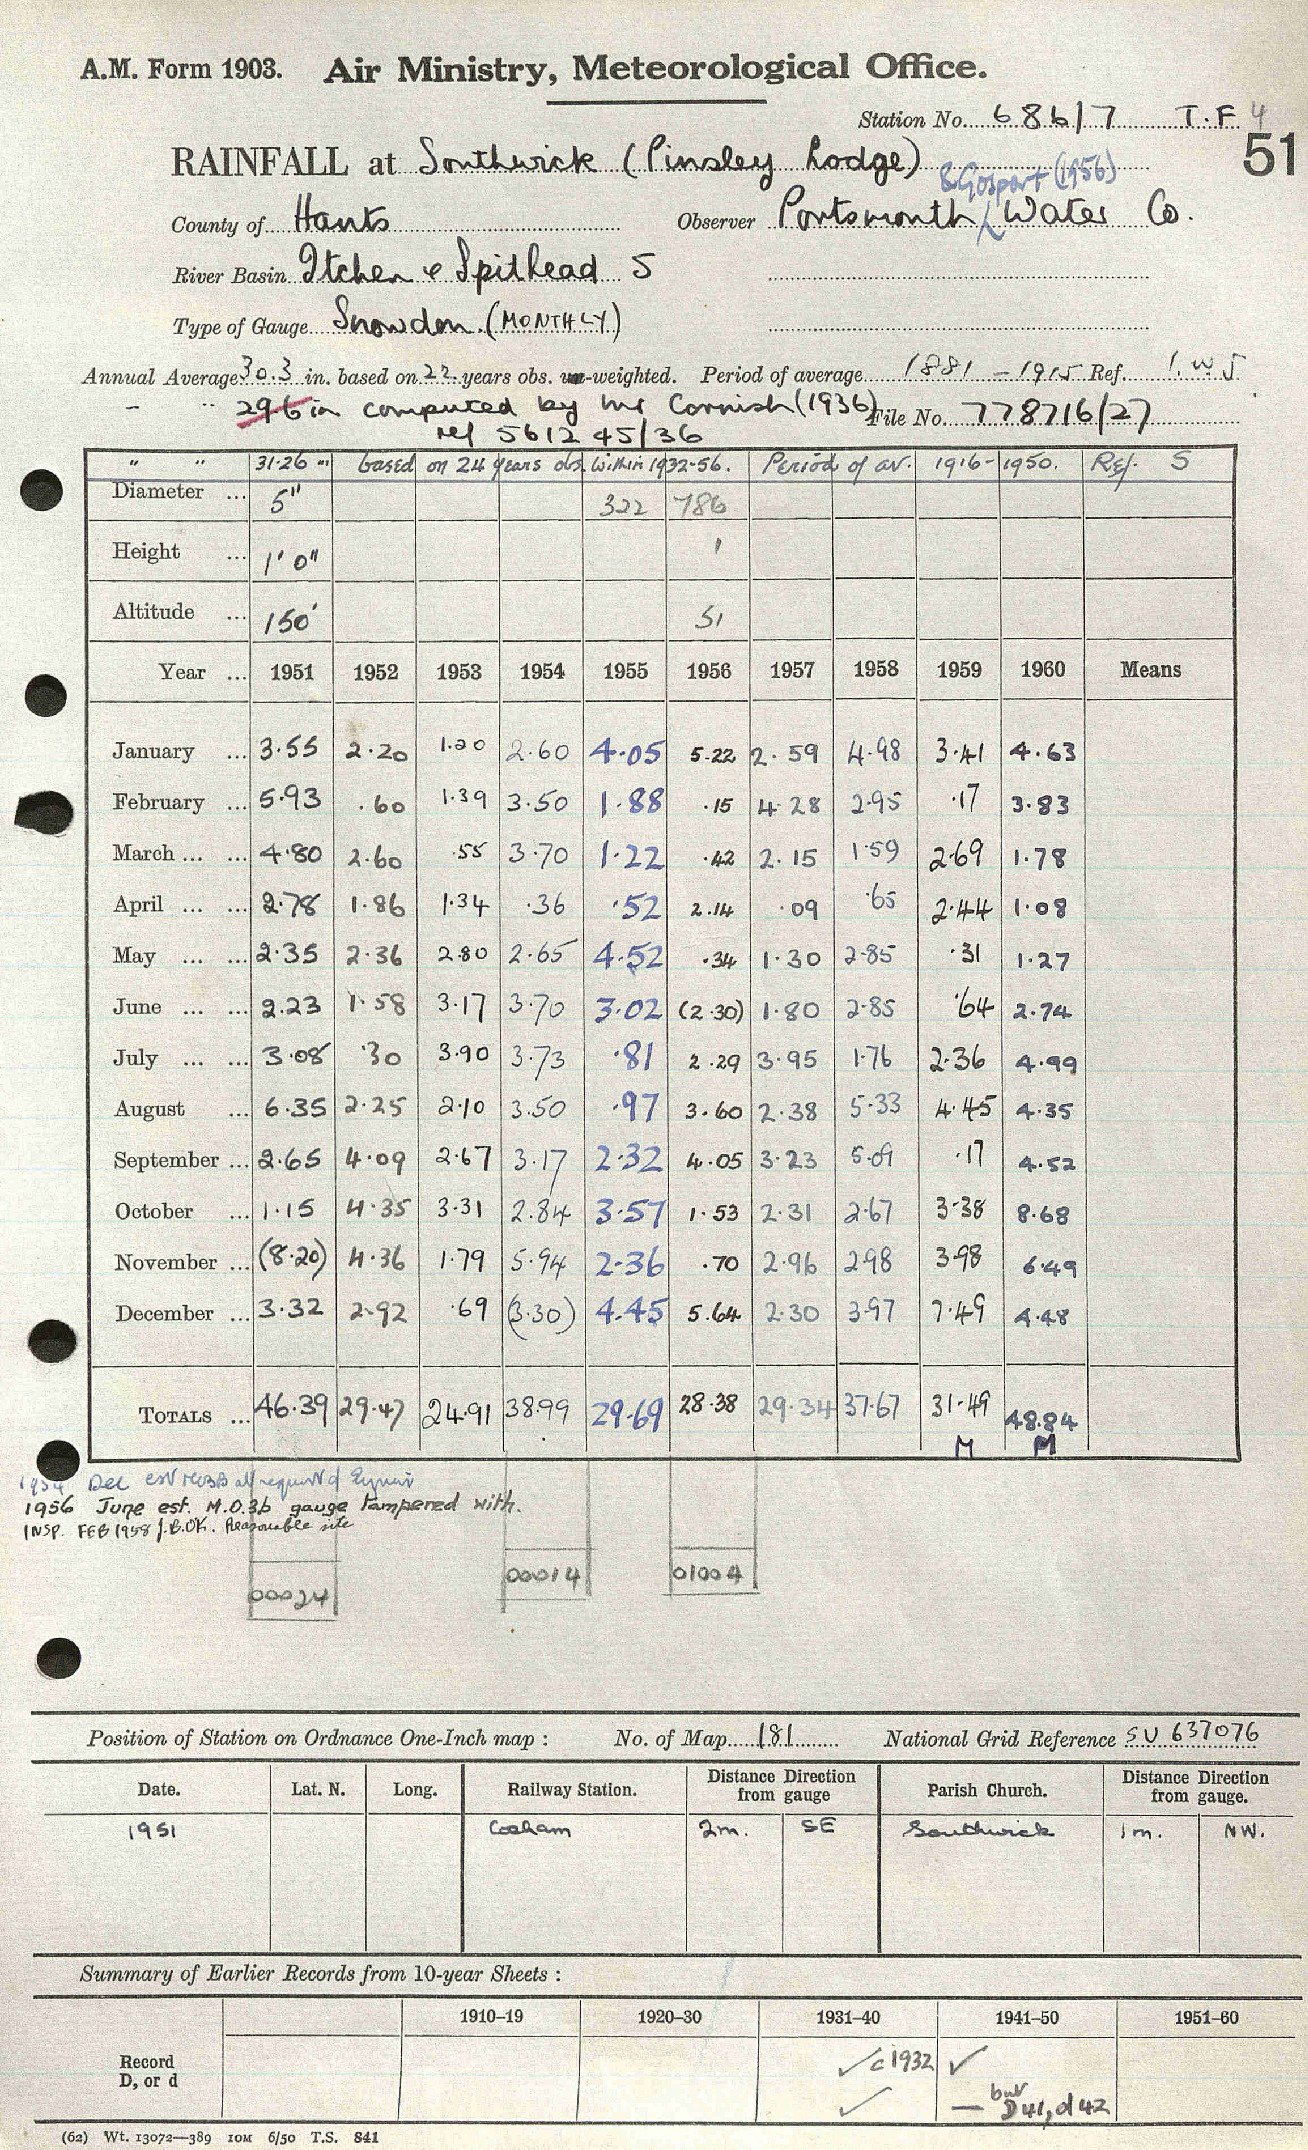 A.M. Form 1903. Air Ministry, Meteorological Office.
Station No. 686/7 T.F 4
51
RAINFALL at Southwick (Pinsley Lodge)
& Gosport (1956)
County of Hants Observer Portsmouth Water Co.
River Basin Itchen & Spithead 5
Type of Gauge Snowdon (MONTHLY)
Annual Average 30.3 in. based on 22 years obs. un-weighted. Period of average 1881 - 1915 Ref. I.W 5
- " 29.6 in computed by Mr Cornish (1936) File No. 778716/27
ref 561245/36
" " 31.26 in based on 24 years obs. within 1932-56. Period of av. 1916-1950. Ref. S
Diameter ... 5" 322 786
Height ... 1' 0" 1
Altitude ... 150' 51
Year ... 1951 1952 1953 1954 1955 1956 1957 1958 1959 1960 Means
January ... 3.55 2.20 1.20 2.60 4.05 5.22 2.59 4.98 3.41 4.63
February ... 5.93 .60 1.39 3.50 1.88 .15 4.28 2.95 .17 3.83
March ... ... 4.80 2.60 .55 3.70 1.22 .42 2.15 1.59 2.69 1.78
April ... ... 2.78 1.86 1.34 .36 .52 2.14 .09 .65 2.44 1.08
May ... ... 2.35 2.36 2.80 2.65 4.52 .34 1.30 2.85 .31 1.27
June ... ... 2.23 1.58 3.17 3.70 3.02 (2.30) 1.80 2.85 .64 2.74
July ... ... 3.08 .30 3.90 3.73 .81 2.29 3.95 1.76 2.36 4.99
August ... 6.35 2.25 2.10 3.50 .97 3.60 2.38 5.33 4.45 4.35
September ... 2.65 4.09 2.67 3.17 2.32 4.05 3.23 5.09 .17 4.52
October ... 1.15 4.35 3.31 2.84 3.57 1.53 2.31 2.67 3.38 8.68
November ... (8.20) 4.36 1.79 5.94 2.36 .70 2.96 2.98 3.98 6.49
December ... 3.32 2.92 .69 (3.30) 4.45 5.64 2.30 3.97 7.49 4.48
TOTALS ... 46.39 29.47 24.91 38.99 29.69 28.38 29.34 37.67 31.49 48.84
M M
1954 Dec est MO3B at request of
1956 June est. M.O.3b gauge tampered with.
INSP. FEB 1958 J.B. OK. Reasonable site
00024 00014 01004
Position of Station on Ordnance One-Inch map : No. of Map 181 National Grid Reference SU 637076
Date. Lat. N. Long. Railway Station. Distance Direction from gauge Parish Church. Distance Direction from gauge.
1951 Cosham 2m. SE Southwick 1m. NW.
Summary of Earlier Records from 10-year Sheets :
1910–19 1920–30 1931–40 1941–50 1951–60
Record ✓ c 1932 ✓
D, or d ✓ — but D41, d42
(62) Wt. 13072—389 10M 6/50 T.S. 841